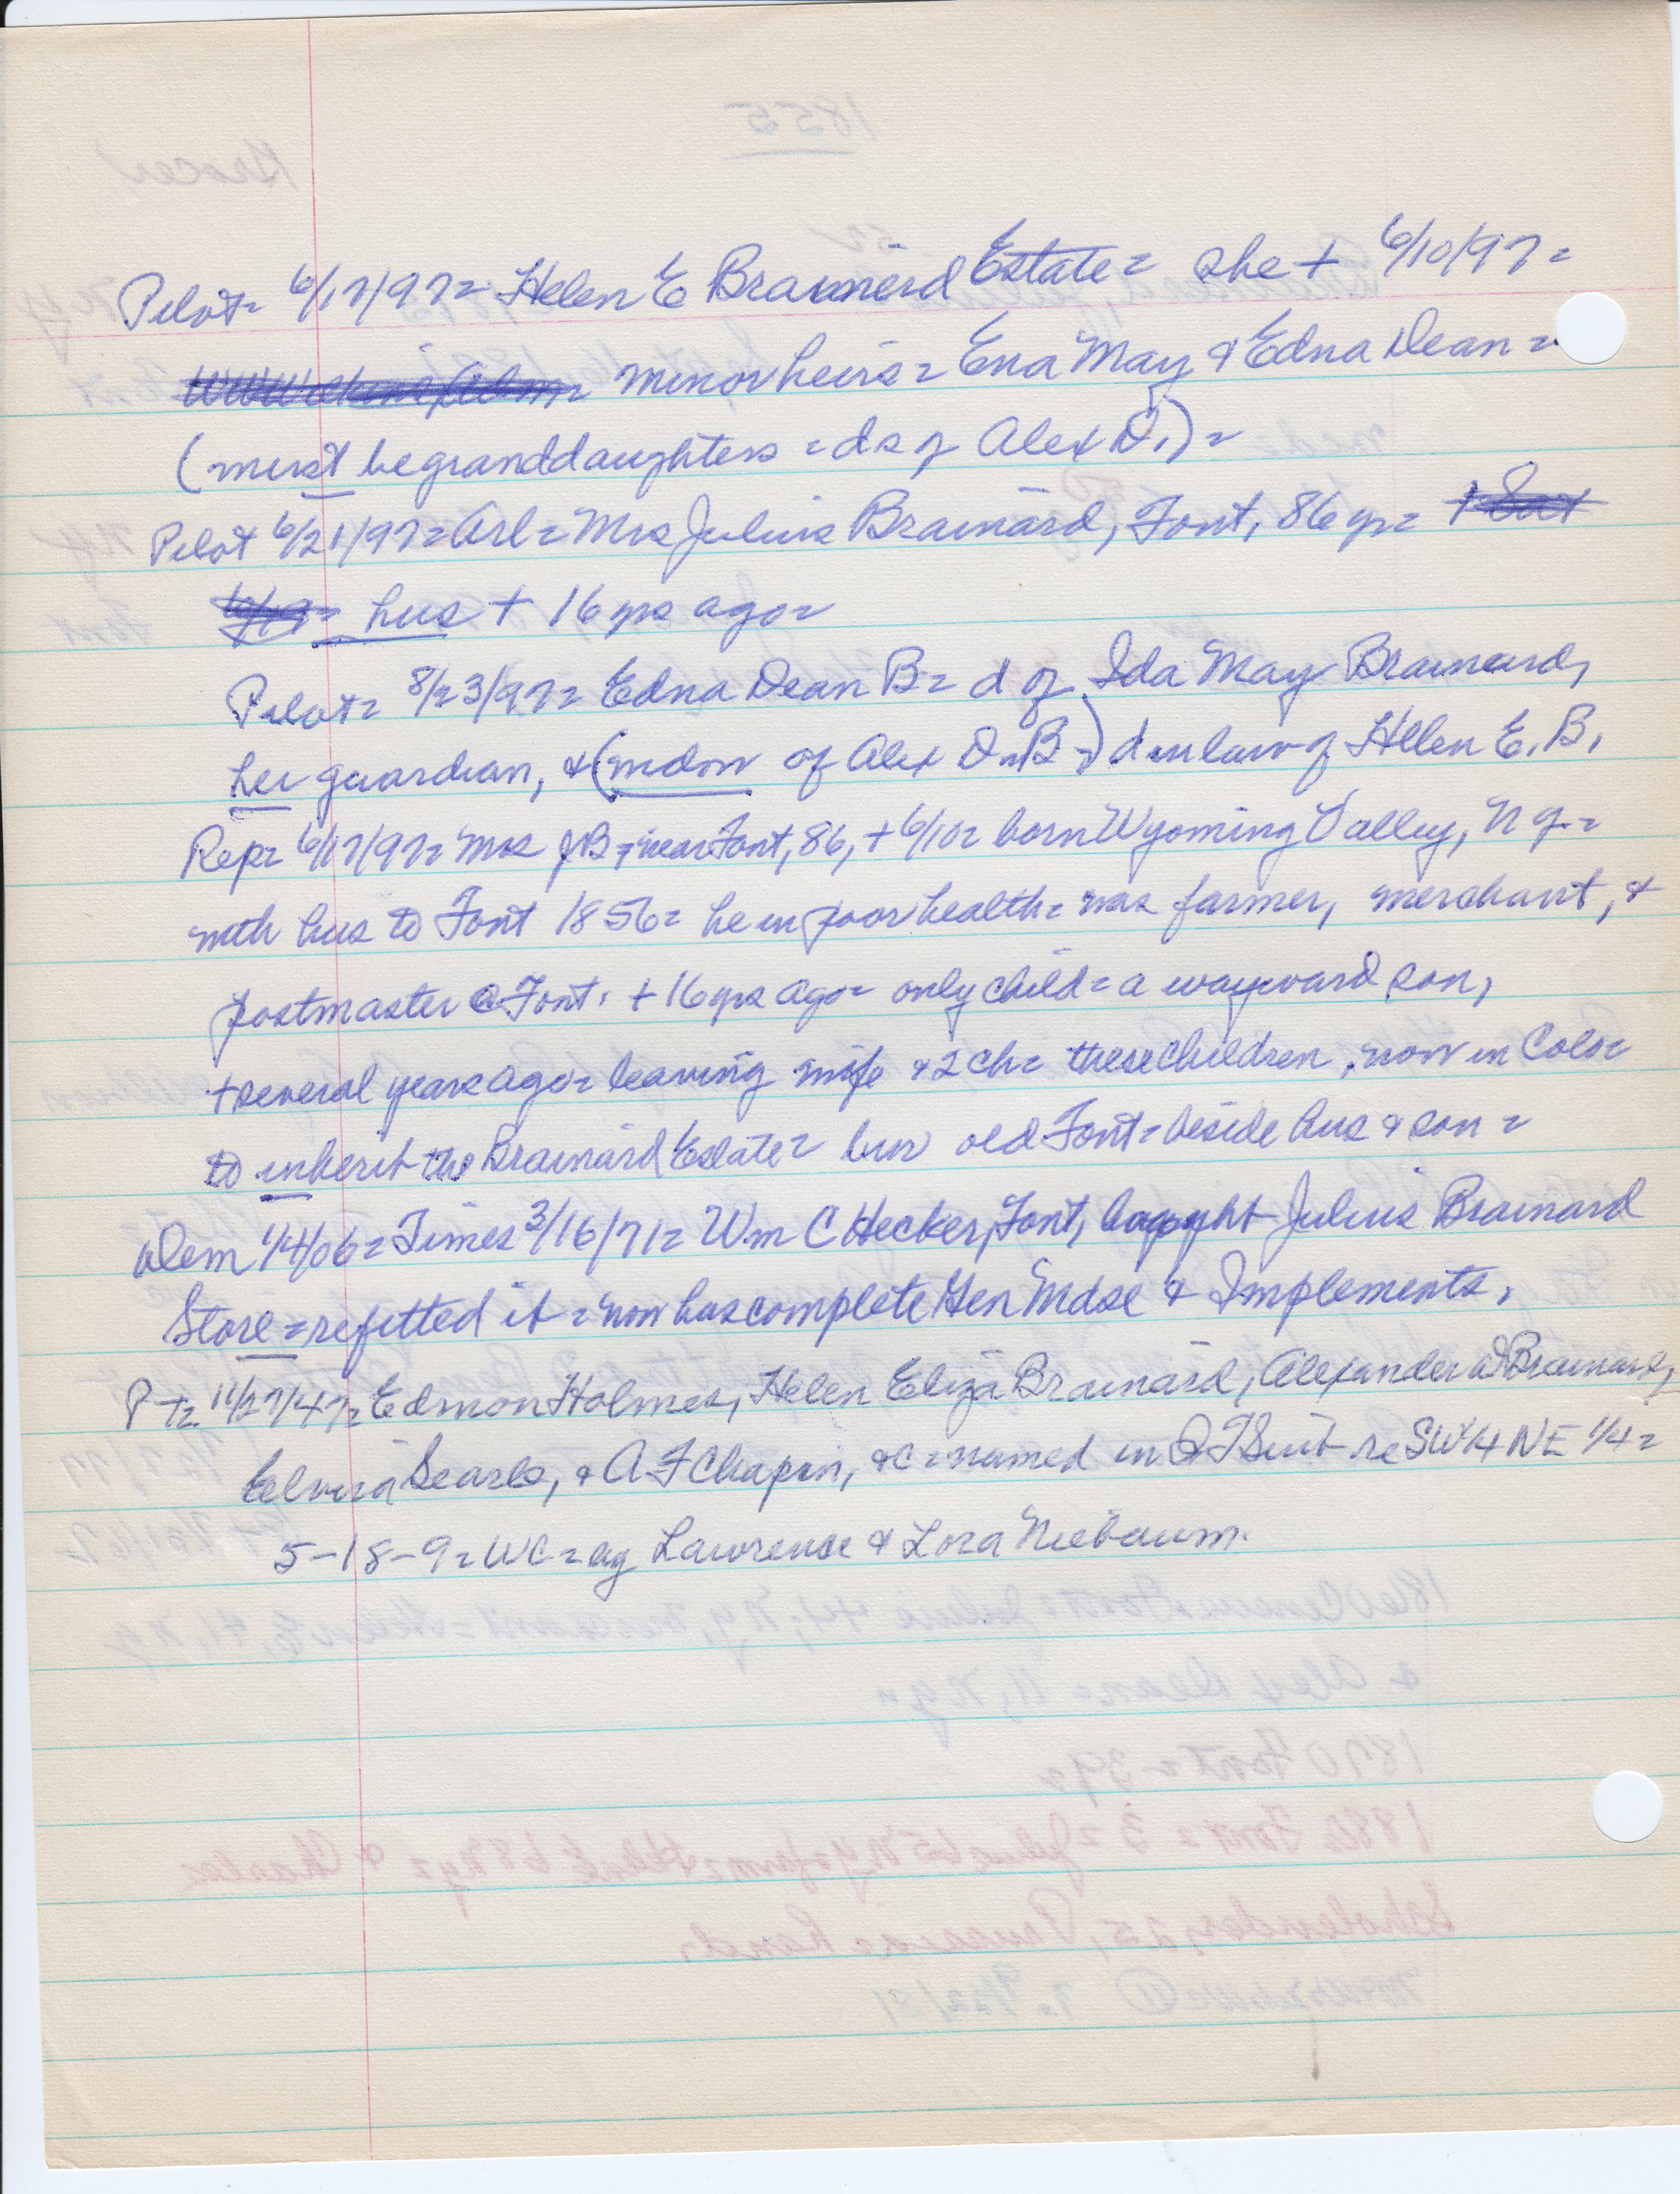 Pilot= 6/17/97= Helen E Brainerd Estate= she + 6/10/97=
minor heirs= Ena May & Edna Dean=
(must be granddaughters = ds of Alex D.)=
Pilot 6/21/97= Arl= Mrs Julius Brainard, Font, 86 yrs=
hus + 16 yrs ago=
Pilot= 8/23/97= Edna Dean B= d of Ida May Brainard,
her guardian, & (widow of Alex D. B=) d in law of Helen E. B.
Rep= 6/17/97= Mrs JB, near Font, 86, + 6/10= born Wyoming Valley, Ny.=
with hus to Font 1856= he in poor health= was farmer, merchant, &
postmaster @ Font. + 16 yrs ago= only child= a wayward son,
+ several years ago= leaving wife & 2 ch= these children, now in Colo=
to inherit the Brainard Estate= bur old Font= beside hus & son=
Dem 1/4/06= Times 3/16/71= Wm C Hecker, Font, bought Julius Brainard
Store= refitted it= now has complete Gen Mdse & Implements.
PT= 11/27/47= Edmon Holmes, Helen Eliza Brainard, Alexander D Brainard,
Elvira Searls, & A F Chapin, &c= named in QT Suit re SW 1/4 NE 1/4=
5-18-9= WC= ag Lawrence & Lora Niebaum.